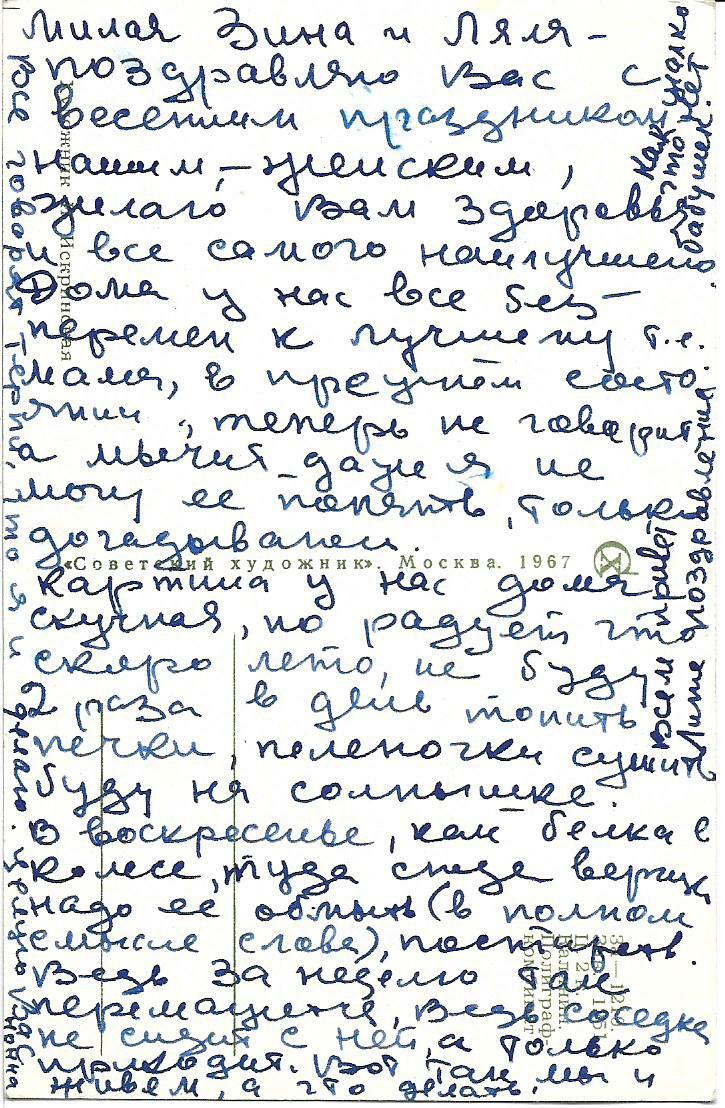 Милая Зина и Ляля –
поздравляю Вас с
весенним праздником
нашим, – женским,
желаю Вам здоровья
и все самого наилучшего.
Дома у нас все без –
перемен к лучшему т.е.
мама, в прежнем состо-
янии, теперь не говорит
а мычит даже я не
могу ее понять, только
догадываюсь.
Картина у нас дома
скучная, но радует что
скоро лето, не буду
2 раза в день топить
печки, пеленочки сушить
буду на солнышке.
В воскресенье, как белка в
колесе, туда сюда верчусь
надо ее обмыть (в полном
смысле слова), постирать.
Ведь за неделю так
перемажется, ведь соседка
не сидит с ней, а только
приходит. Вот так мы и
живем, а что делать.
Все говорят терпи, что я и делаю. Целую Вас
Нонна
Как жалко
что нет
бабушек.
Всем привет
Лите поздравления.
Художник Искринская
«Советский художник». Москва. 1967
Полиграф-
комбинат